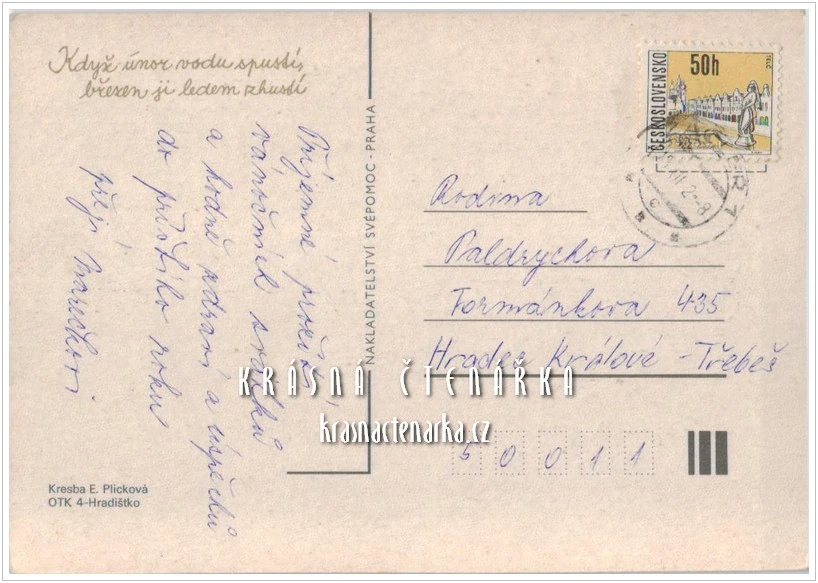 Když únor vodu spustí,
březen ji ledem zhustí
Příjemné prožití
vánočních svátků
a hodně zdraví a úspěchů
do příštího roku
přejí
NAKLADATELSTVÍ SVÉPOMOC - PRAHA
ČESKOSLOVENSKO
50h
TELČ
Rodina
Paldrychova
Formánkova 435
Hradec Králové - Třebeš
KRÁSNÁ ČTENÁŘKA
krasnactenarka.cz
50011
Kresba E. Plicková
OTK 4-Hradištko